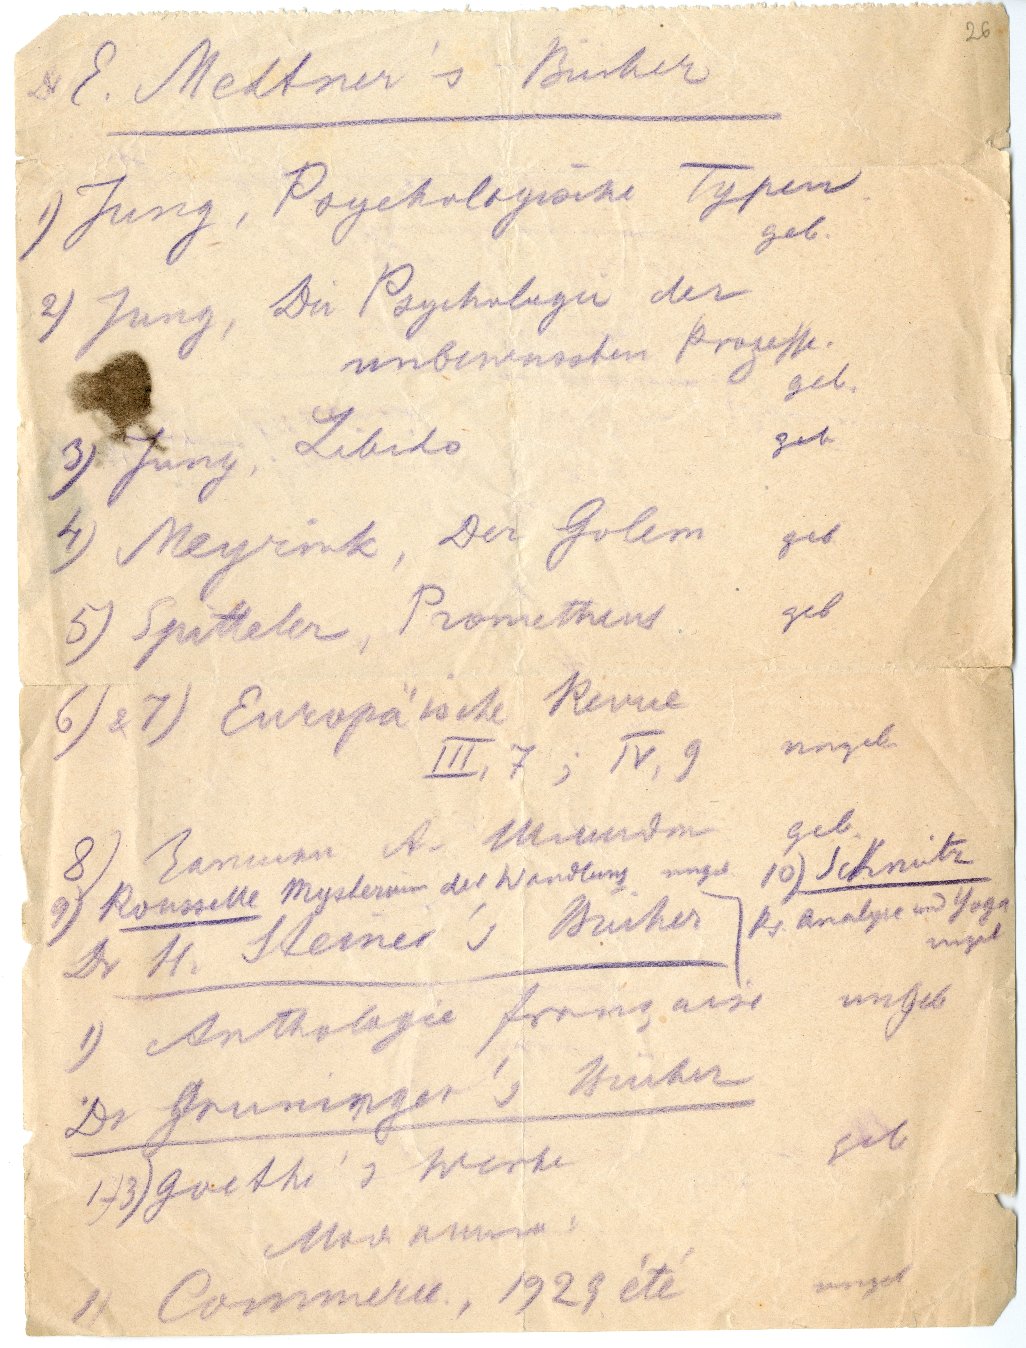 26
Dr E. Medtner's Bücher
1) Jung, Psychologische Typen.
geb.
2) Jung, Die Psychologie der
unbewussten Prozesse.
geb.
3) Jung, Libido geb
4) Meyrink, Der Golem geb
5) Spitteler, Prometheus. geb
6) & 7) Europäische Revue
III, 7 ; IV, 9 ungeb.
8) A. geb.
9) Rousselle Mysterium der Wandlung ungeb 10) Schmitz
Dr H. Steiner's Bücher Ps. Analyse und Yoga
ungeb
1) Anthologie française ungeb
Dr Gruninger's Bücher
1-3) Goethe's Werke geb
Commerce, 1929 été ungeb